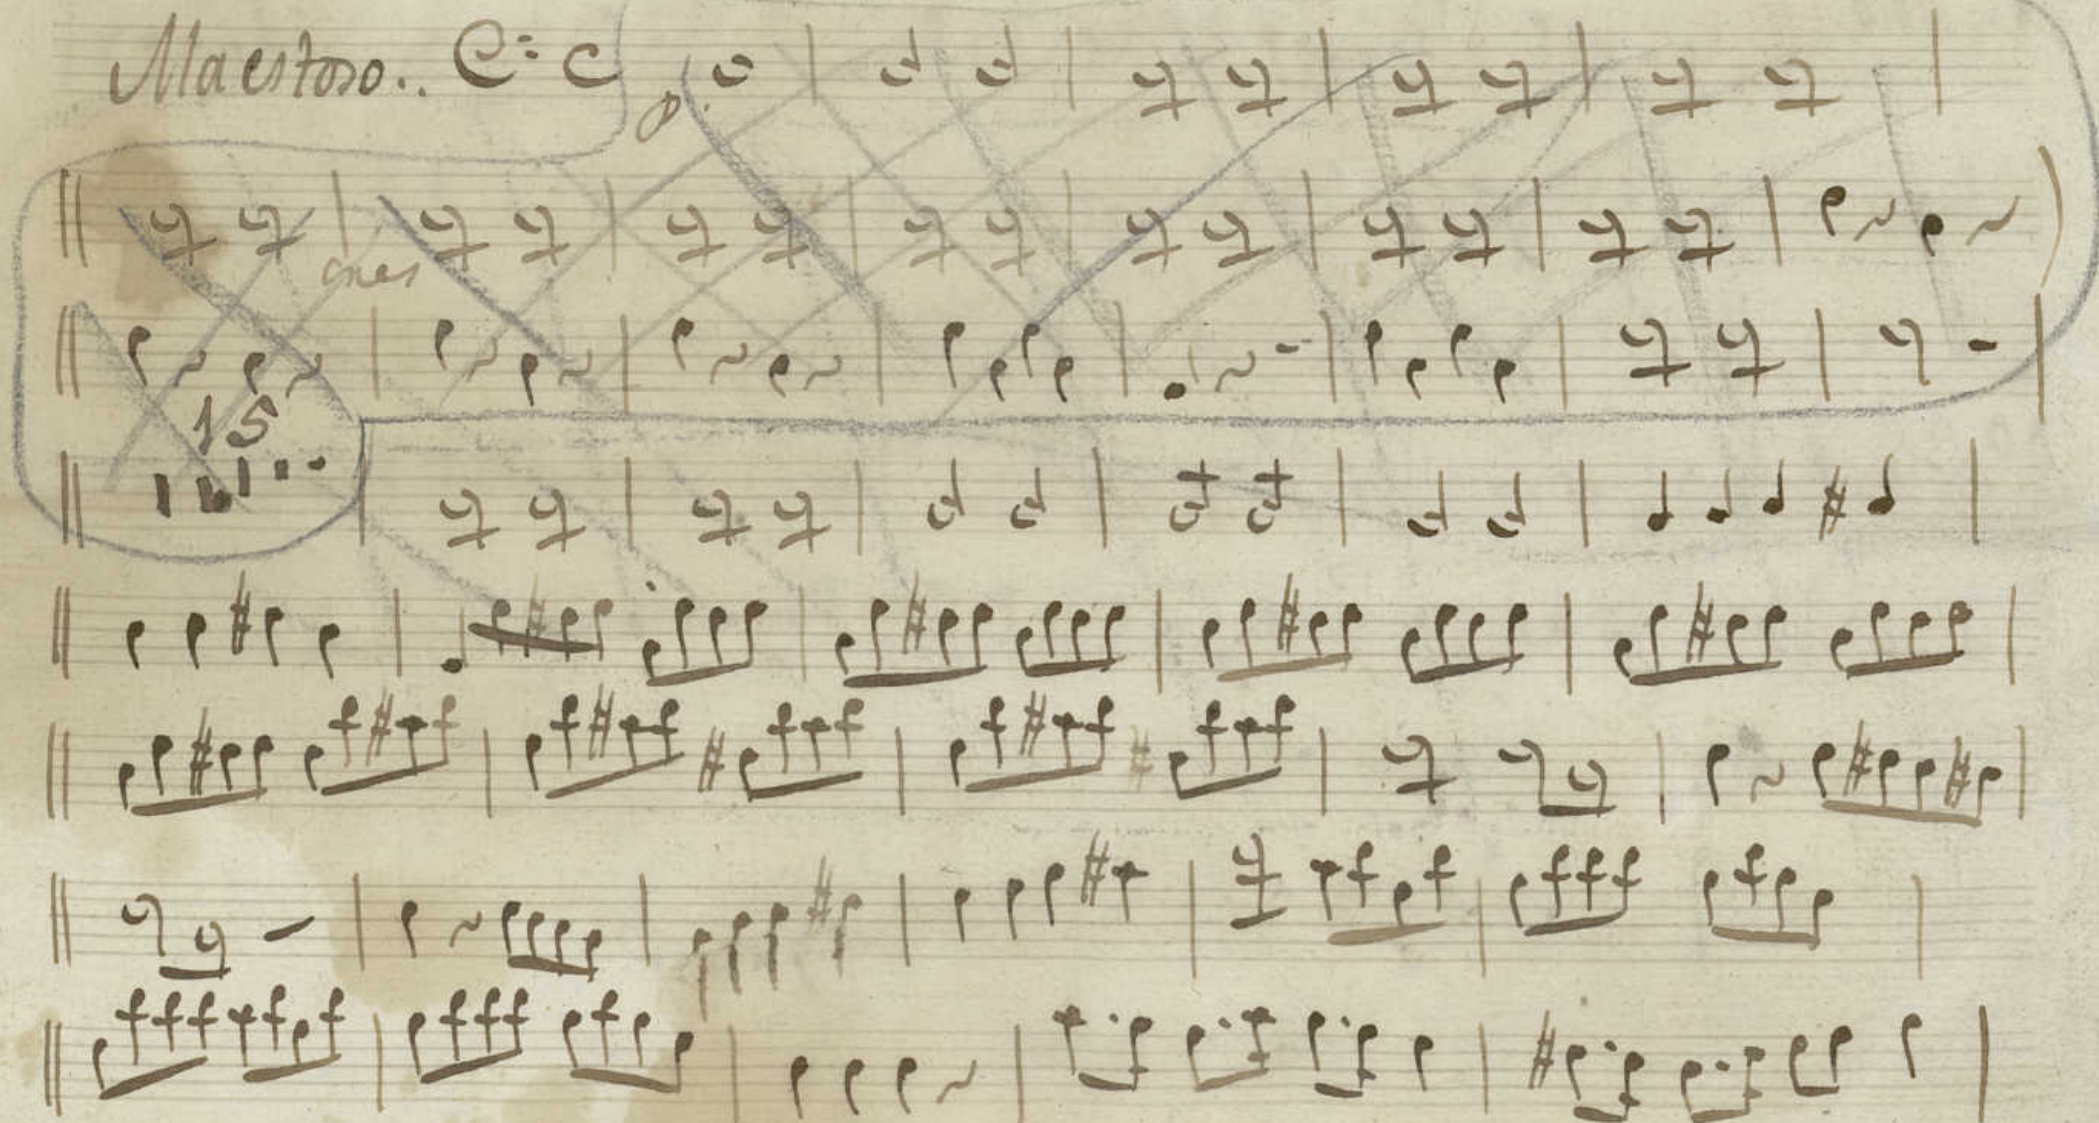 Maestoso..
cres
15